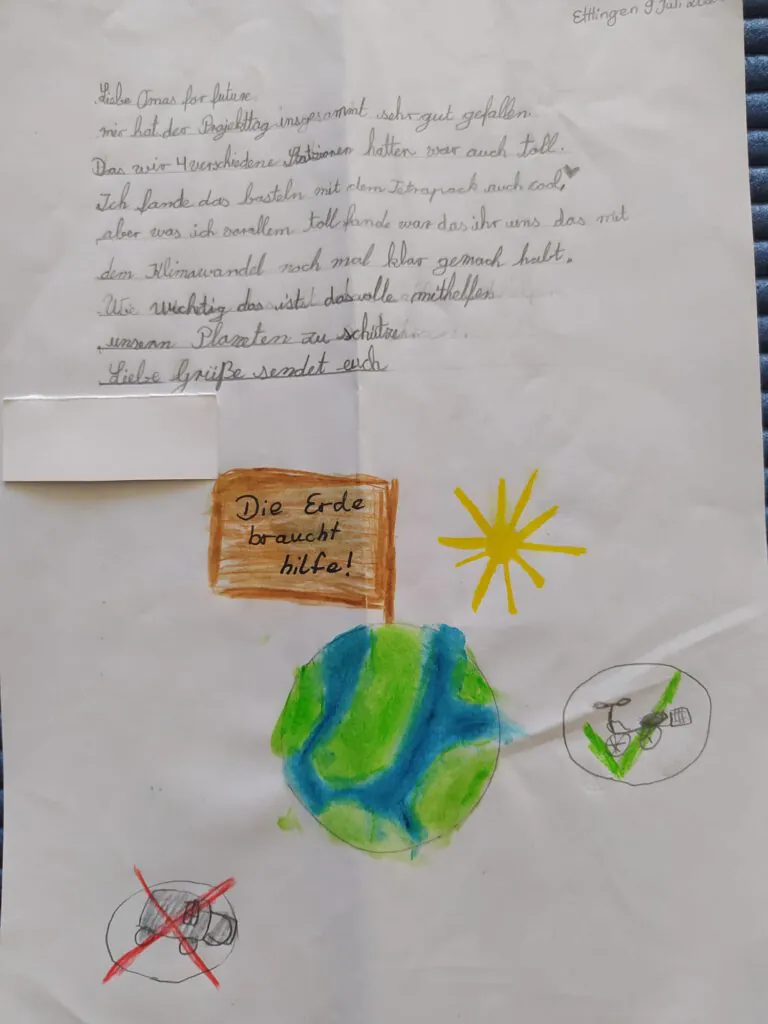 Ettlingen 9 Juli
Liebe Omas for future
mir hat der Projekttag insgesammt sehr gut gefallen.
Das wir 4 verschiedene Stationen hatten war auch toll.
Ich fande das basteln mit dem Tetrapack auch cool,
aber was ich vorallem toll fande war das ihr uns das mit
dem Klimawandel noch mal klar gemach habt.
Wie wichtig das ist das alle mithelfen
unsern Planeten zu schütze
Liebe Grüße sendet euch
Die Erde
braucht
hilfe!